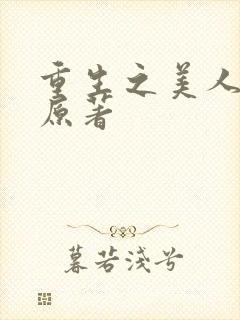 重生之美人
原著
暮若浅兮